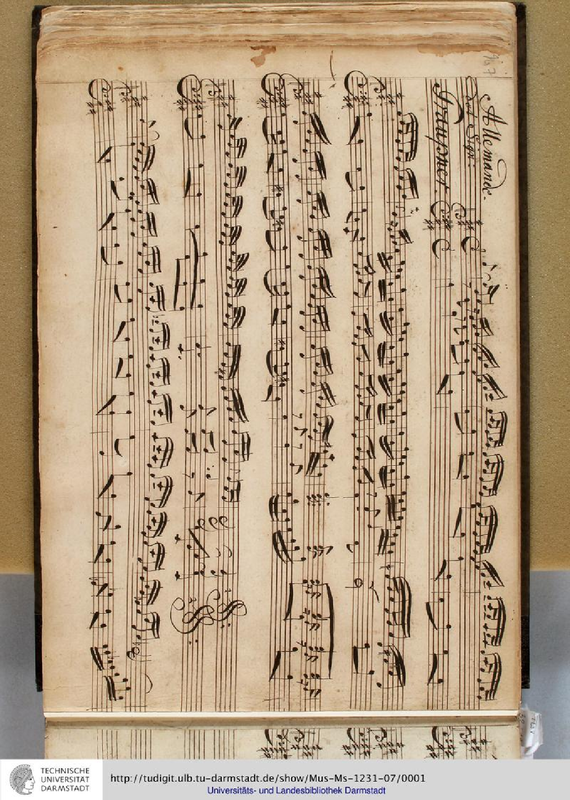 Allemande.
del Sigr:
Graupner
TECHNISCHE
UNIVERSITÄT
DARMSTADT
http://tudigit.ulb.tu-darmstadt.de/show/Mus-Ms-1231-07/0001
Universitäts- und Landesbibliothek Darmstadt